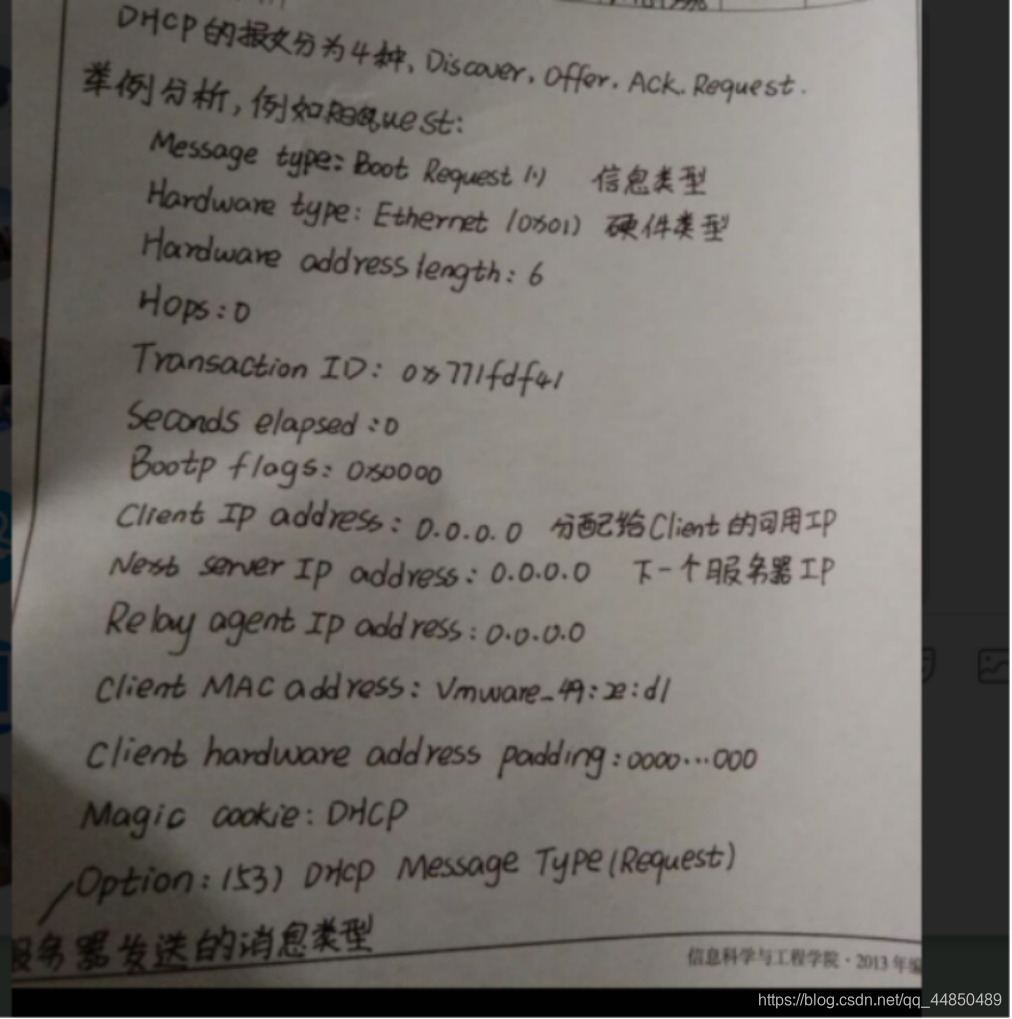 DHCP的报文分为4种, Discover, Offer. Ack. Request.
举例分析,例如Request:
Message type: Boot Request (1) 信息类型
Hardware type: Ethernet (0x01) 硬件类型
Hardware address length: 6
Hops: 0
Transaction ID: 0x771fdf41
Seconds elapsed: 0
Bootp flags: 0x0000
Client IP address: 0.0.0.0 分配给Client的可用IP
Next server IP address: 0.0.0.0 下一个服务器IP
Relay agent IP address: 0.0.0.0
Client MAC address: Vmware_49: :d1
Client hardware address padding: 0000...000
Magic cookie: DHCP
Option: (53) DHCP Message Type (Request)
服务器发送的消息类型
信息科学与工程学院·2013年编
https://blog.csdn.net/qq_44850489